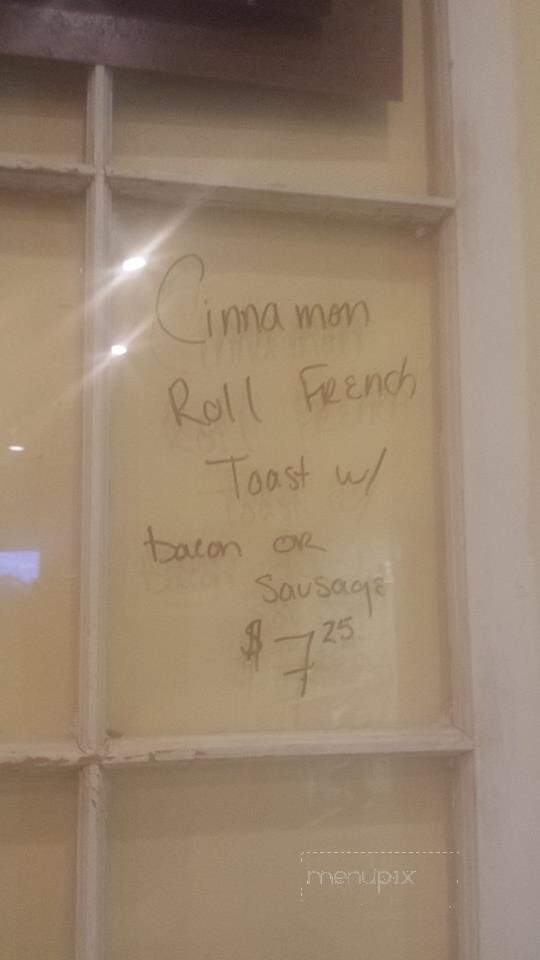 Cinnamon
Roll French
Toast w/
bacon or
sausage
$7.25
menupix